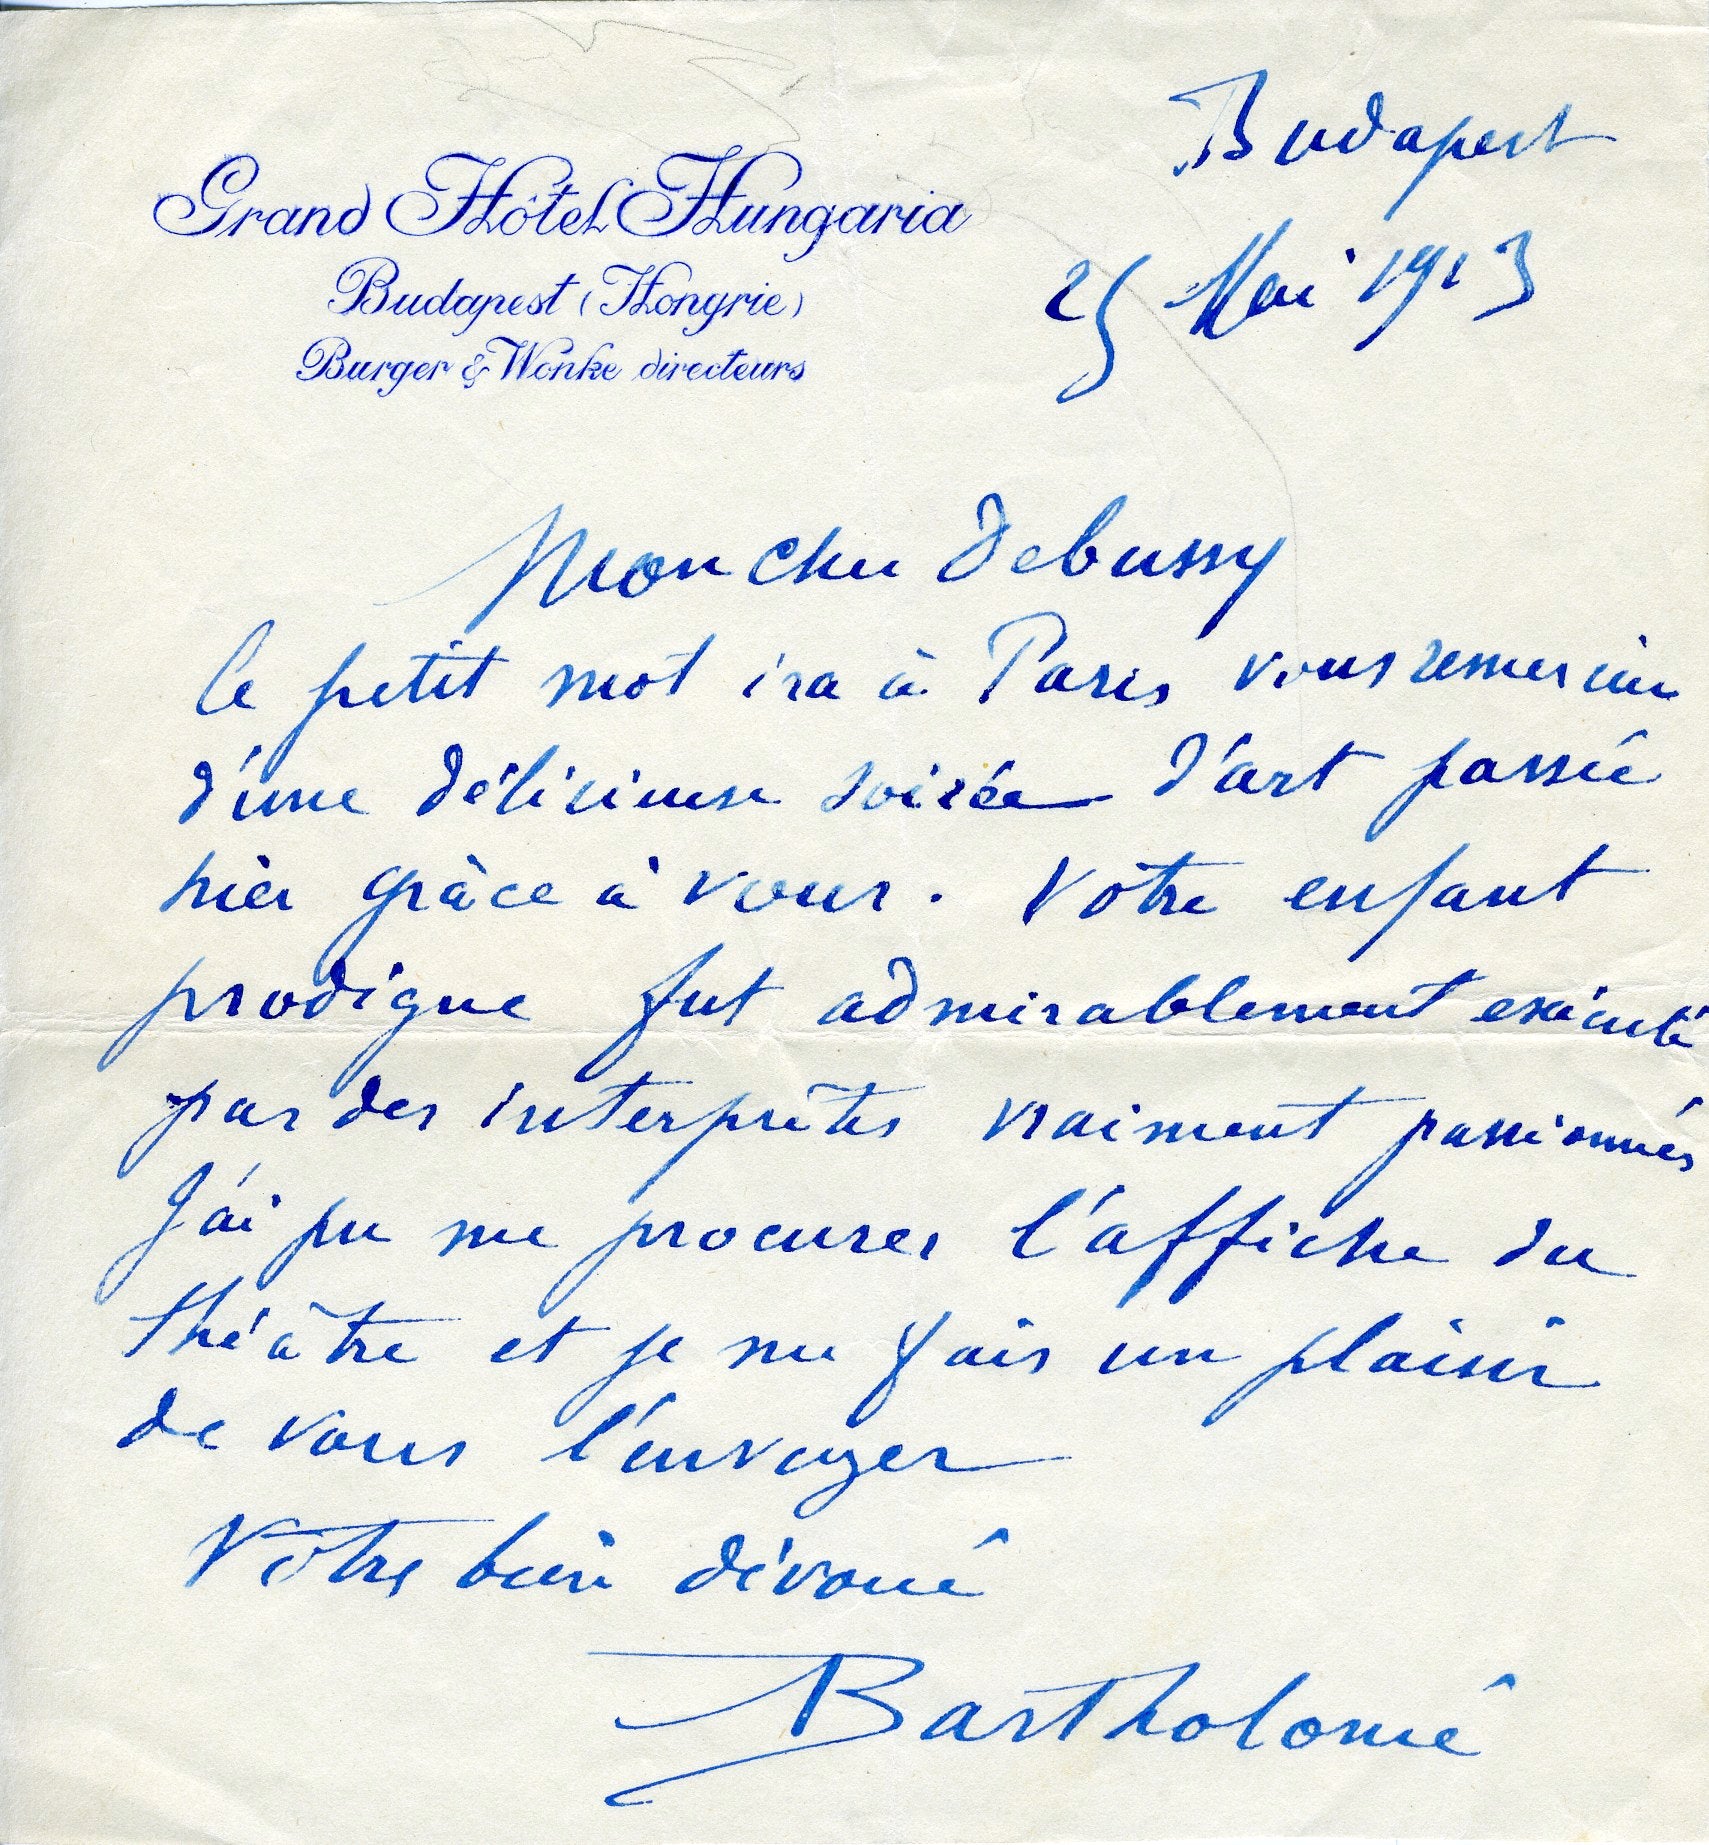 Grand Hôtel Hungaria
Budapest (Hongrie)
Burger & Wonke directeurs
Budapest
25 Mai 1913
Mon cher Debussy
Ce petit mot ira à Paris vous remercier
d'une délicieuse soirée d'art passée
hier grâce à vous. Votre enfant
prodigue fut admirablement exécuté
par des interprètes vraiment passionnés
J'ai pu me procurer l'affiche du
théâtre et je me fais un plaisir
de vous l'envoyer
Votre bien dévoué
Bartholomé